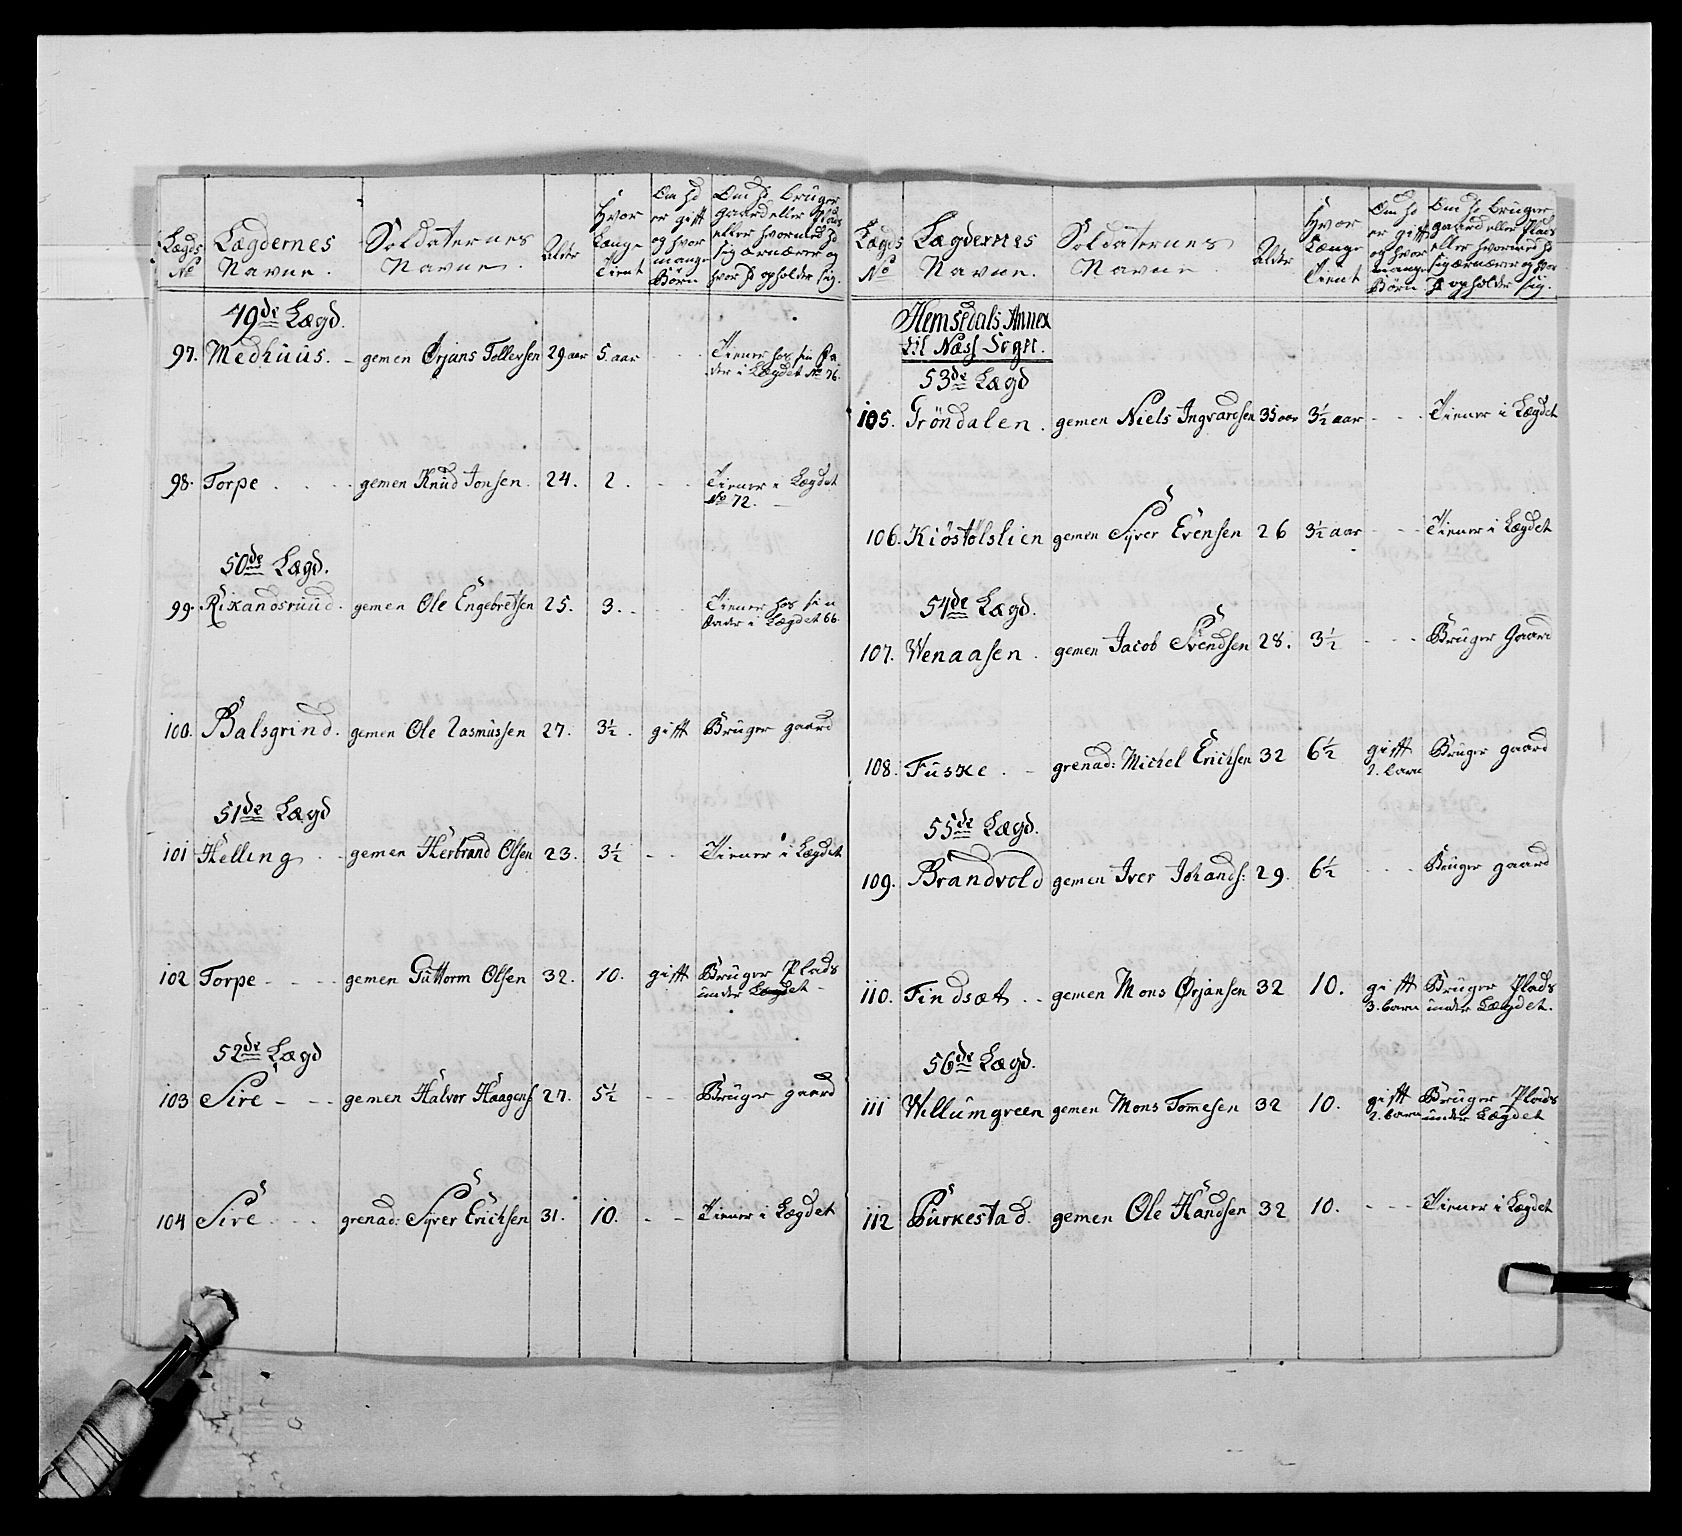 Lægds No
Lægdernes Navne.
Soldaternes Navne.
Alder
Hvor Længe Tient
Om hd er gift og hvor mange Börn
Om hd brüger gaard eller Plads eller hvormed hd sig ærnærer og hvor hd opholder sig.
49de Lægd.
97. Medhüüs. gemen Ørjans Tollevsen 29 aar 5. aar - - - Tiener hos sin Fader i Lægdet No 76.
98. Torpe gemen Knüd Jonsen. 24. 2. - - - Tiener i Lægdet No 72.
50de Lægd.
99. Rixandsrüüd. gemen Ole Engebretsen 25. 3. - - - Tiener hos sin Fader i Lægdet 66.
100. Balsgrind. gemen Ole Rasmüssen 27. 3½. gift Brüger gaard
51de Lægd
101 Helling gemen Herbrand Olsen 23. 3½ - - Tiener i Lægdet
102 Torpe - - - gemen Güttorm Olsen 32. 10. gift Brüger Plads ünder Lægdet -
52de Lægd
103 Sire - - - gemen Halvor Haagens 27. 5½ - - Brüger gaard
104 Sire grenad: Syver Erichsen 31. 10. - - Tiener i Lægdet
Lægds No
Lægdernes Navne.
Soldaternes Navne
Alder
Hvor Længe Tient
Om hd er gift og hvor mange Börn
Om hd brüger gaard eller Plads eller hvormed hd sig ærnærer og hvor hd opholder sig.
Hemsedals Annex
til Næss Sogn.
53de Lægd
105. Gröndalen. gemen Niels Ingvardsen 35 aar 3½ aar - - - Tiener i Lægdet
106. Kiöstölslien gemen Syver Evensen 26 3½ aar - - - Tiener i Lægdet
54de Lægd.
107. Wenaasen. gemen Jacob Svendsen 28. 3½ - - - Brüger Gaard
108. Füske. grenad: Michel Erichsen 32 6½ gift 2. barn Brüger gaard
55de Lægd.
109. Brandvold gemen Iver Johands: 29. 6½ - - - Brüger gaard
110. Findsæt gemen Mons Ørjansen 32 10. gift 3. barn Brüger Plads ünder Lægdet.
56de Lægd.
111 Willümgreen gemen Mons Tomesen 32 10. gift 2. barn Brüger Plads ünder Lægdet
112 Bürkestad. gemen Ole Handsen 32 10. - - - Tiener i Lægdet